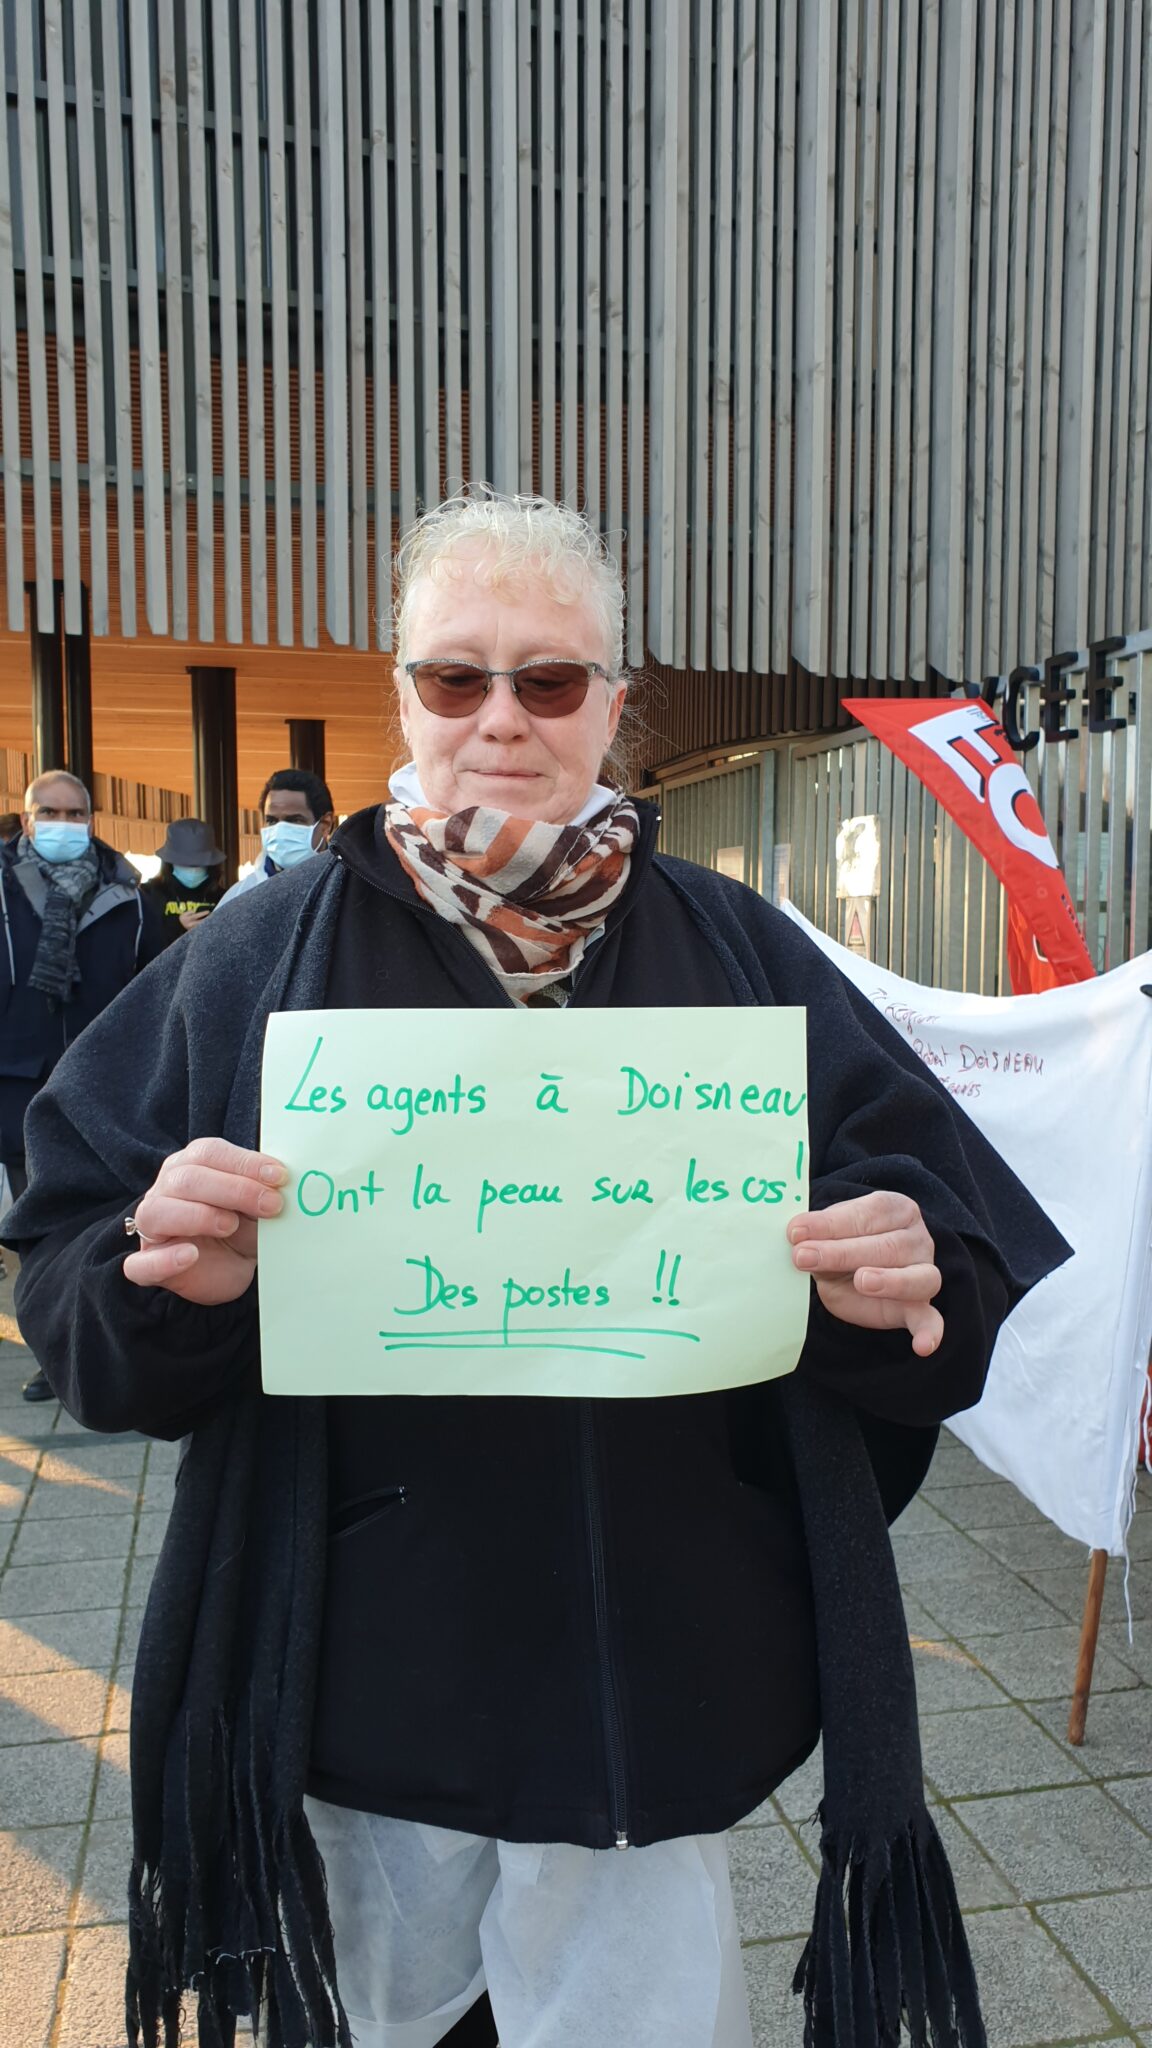 LYCEE
Les agents à Doisneau
Ont la peau sur les os!
Des postes !!
Robert DOISNEAU